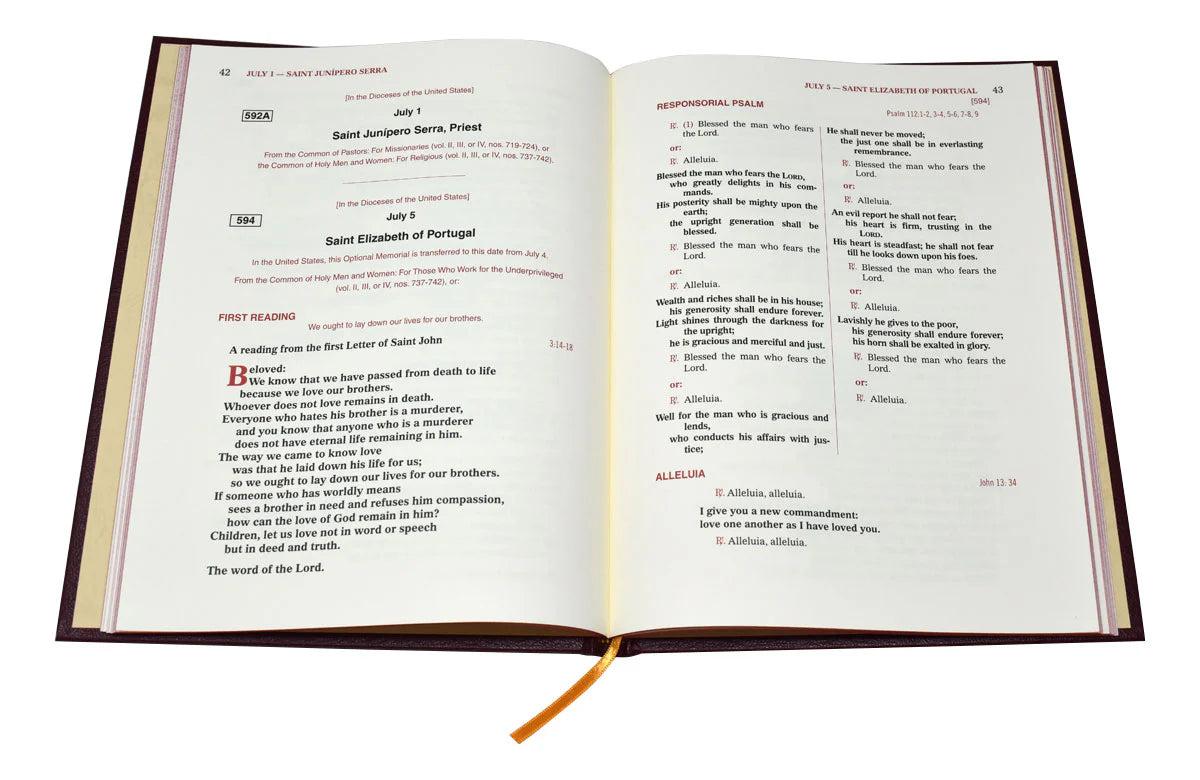 42 JULY 1 — SAINT JUNÍPERO SERRA
[In the Dioceses of the United States]
592A
July 1
Saint Junípero Serra, Priest
From the Common of Pastors: For Missionaries (vol. II, III, or IV, nos. 719-724), or
the Common of Holy Men and Women: For Religious (vol. II, III, or IV, nos. 737-742).
[In the Dioceses of the United States]
594
July 5
Saint Elizabeth of Portugal
In the United States, this Optional Memorial is transferred to this date from July 4.
From the Common of Holy Men and Women: For Those Who Work for the Underprivileged
(vol. II, III, or IV, nos. 737-742), or:
FIRST READING
We ought to lay down our lives for our brothers.
A reading from the first Letter of Saint John 3:14-18
Beloved:
We know that we have passed from death to life
because we love our brothers.
Whoever does not love remains in death.
Everyone who hates his brother is a murderer,
and you know that anyone who is a murderer
does not have eternal life remaining in him.
The way we came to know love
was that he laid down his life for us;
so we ought to lay down our lives for our brothers.
If someone who has worldly means
sees a brother in need and refuses him compassion,
how can the love of God remain in him?
Children, let us love not in word or speech
but in deed and truth.
The word of the Lord.
JULY 5 — SAINT ELIZABETH OF PORTUGAL 43
[594]
RESPONSORIAL PSALM
Psalm 112:1-2, 3-4, 5-6, 7-8, 9
℟. (1) Blessed the man who fears
the Lord.
or:
℟. Alleluia.
Blessed the man who fears the LORD,
who greatly delights in his com-
mands.
His posterity shall be mighty upon the
earth;
the upright generation shall be
blessed.
℟. Blessed the man who fears the
Lord.
or:
℟. Alleluia.
Wealth and riches shall be in his house;
his generosity shall endure forever.
Light shines through the darkness for
the upright;
he is gracious and merciful and just.
℟. Blessed the man who fears the
Lord.
or:
℟. Alleluia.
Well for the man who is gracious and
lends,
who conducts his affairs with jus-
tice;
He shall never be moved;
the just one shall be in everlasting
remembrance.
℟. Blessed the man who fears the
Lord.
or:
℟. Alleluia.
An evil report he shall not fear;
his heart is firm, trusting in the
LORD.
His heart is steadfast; he shall not fear
till he looks down upon his foes.
℟. Blessed the man who fears the
Lord.
or:
℟. Alleluia.
Lavishly he gives to the poor,
his generosity shall endure forever;
his horn shall be exalted in glory.
℟. Blessed the man who fears the
Lord.
or:
℟. Alleluia.
ALLELUIA
John 13: 34
℟. Alleluia, alleluia.
I give you a new commandment:
love one another as I have loved you.
℟. Alleluia, alleluia.